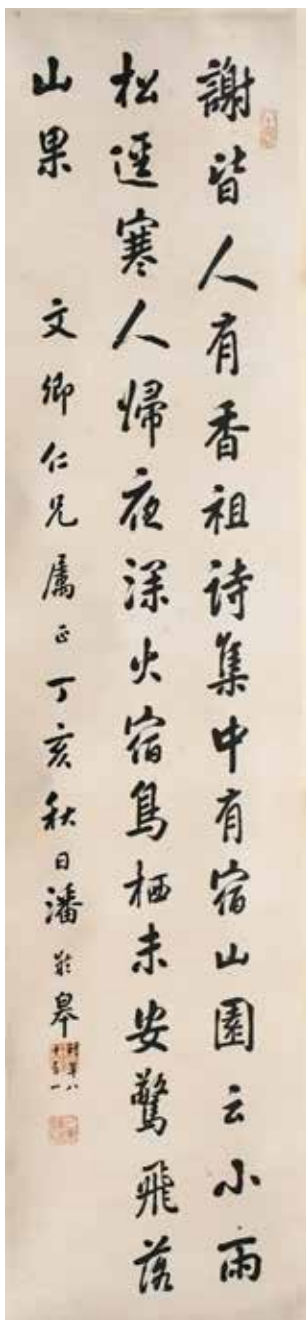 謝皆人有香祖詩集中有宿山園云小雨
松逕寒人歸夜深火宿鳥栖未安驚飛落
山果 文卿仁兄属正丁亥秋日潘齡皋
時年八十有一